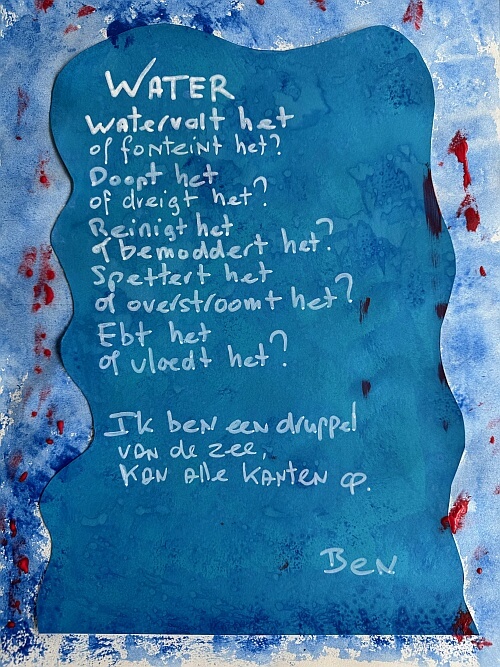 WATER
Watervalt het
of fonteint het?
Doopt het
of dreigt het?
Reinigt het
of bemoddert het?
Spettert het
of overstroomt het?
Ebt het
of vloedt het?
Ik ben een druppel
van de zee,
kan alle kanten op.
Ben